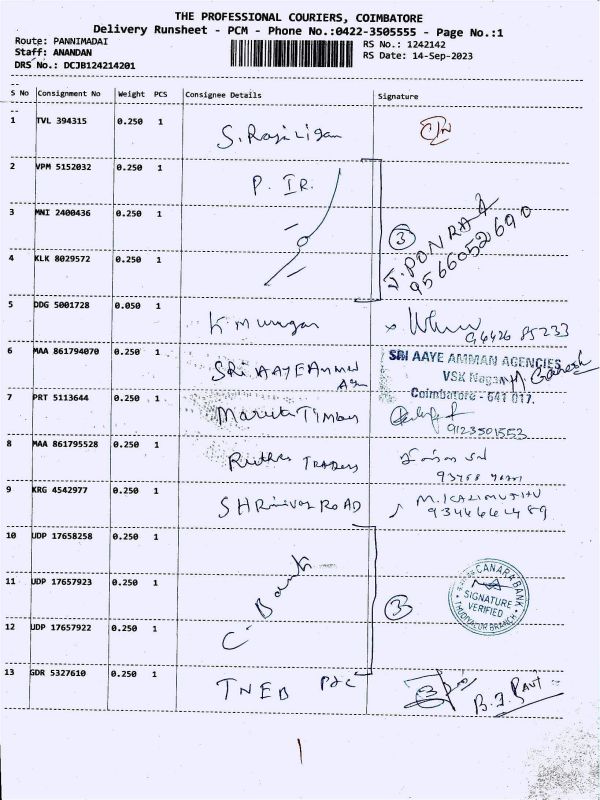 THE PROFESSIONAL COURIERS, COIMBATORE
Delivery Runsheet - PCM - Phone No.:0422-3505555 - Page No.:1
Route: PANNIMADAI
RS No.: 1242142
Staff: ANANDAN
RS Date: 14-Sep-2023
DRS No.: DCJB124214201
S No Consignment No Weight PCS Consignee Details Signature
1 TVL 394315 0.250 1
2 VPM 5152032 0.250 1 P. IR.
3 MNI 2400436 0.250 1 3
J. PONRAJ
9566052690
4 KLK 8029572 0.250 1
5 DDG 5001728 0.050 1 K murugan
96426 85233
6 MAA 861794070 0.250 1 SRi AAYE Ammen
Agn
SRI AAYE AMMAN AGENCIES
VSK Nagar
Coimbatore - 641 017.
Ganesh
7 PRT 5113644 0.250 1 Maruti Timber
9123501553
8 MAA 861795528 0.250 1 TRADERS
9 KRG 4542977 0.250 1 SHRinivas RoAD
M. KALIMUTHU
10 UDP 17658258 0.250 1
11 UDP 17657923 0.250 1 C. Bank 3
CANARA BANK
SIGNATURE
VERIFIED
THUDIYALUR BRANCH
12 UDP 17657922 0.250 1
13 GDR 5327610 0.250 1 TNEB
3